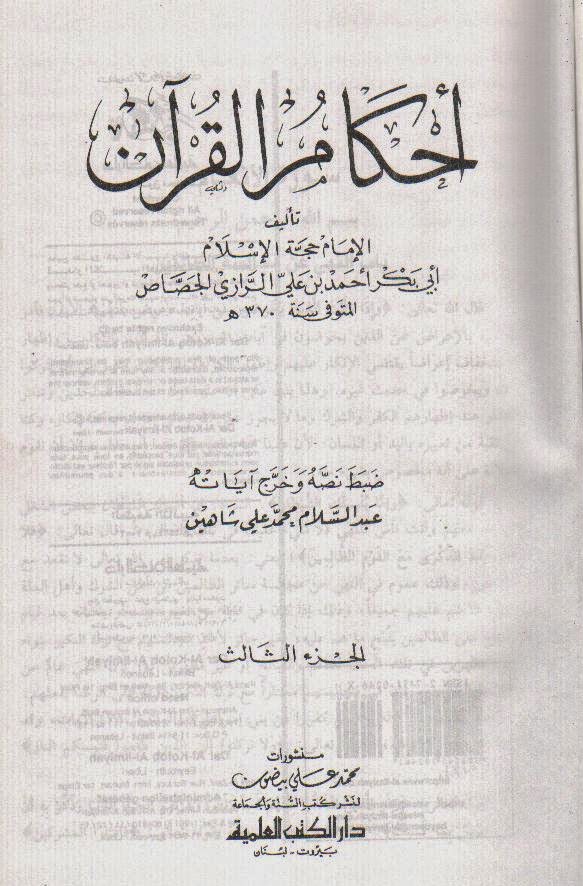 أحكام القرآن
تأليف
الإمام حجة الإسلام
أبي بكر أحمد بن علي الرازي الجصاص
المتوفى سنة ٣٧٠ هـ
ضبط نصه وخرج آياته
عبد السلام محمد علي شاهين
الجزء الثالث
منشورات
محمد علي بيضون
لنشر كتب السنة والجماعة
دار الكتب العلمية
بيروت - لبنان